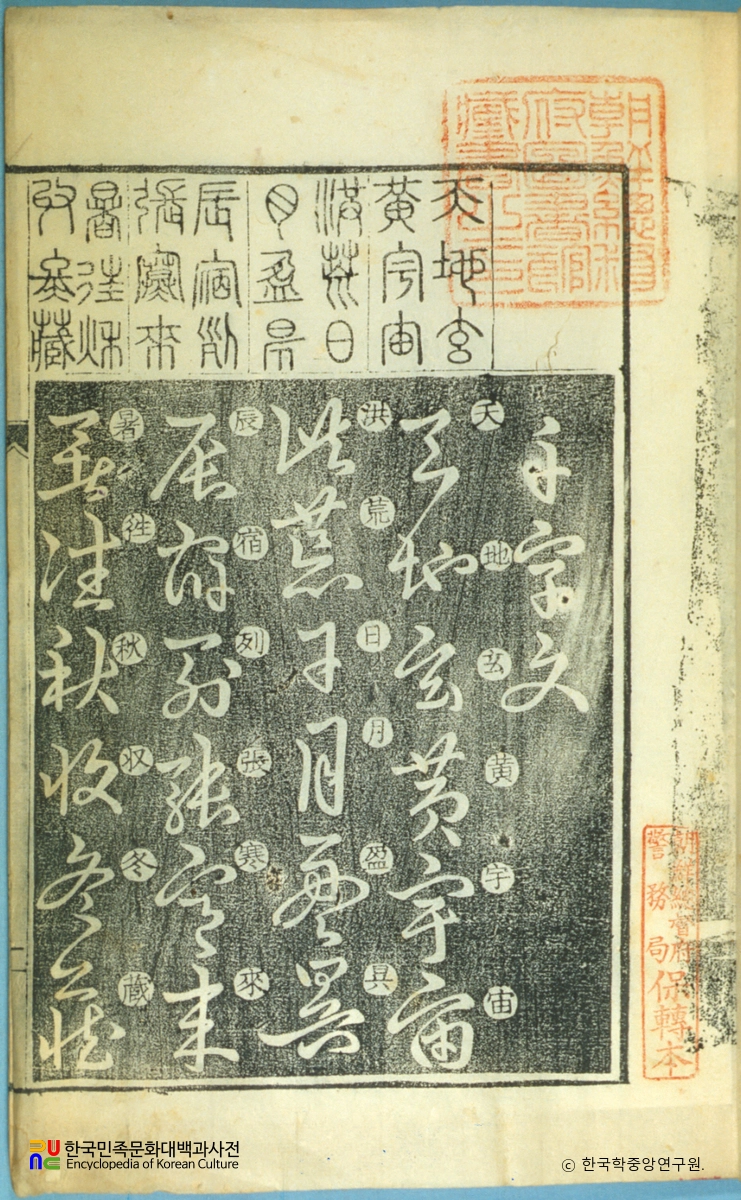 朝鮮總督
府圖書館
藏書之印
天地玄
黃宇宙
洪荒日
月盈昃
辰宿列
張寒來
暑往秋
收冬藏
千字文
天地玄黄宇宙
天地玄黄宇宙
洪荒日月盈昃
洪荒日月盈昃
辰宿列張寒來
辰宿列張寒来
暑徃秋収冬蔵
暑往秋收冬藏
朝鮮總督府
警務局
保轉本
한국민족문화대백과사전
Encyclopedia of Korean Culture
© 한국학중앙연구원.